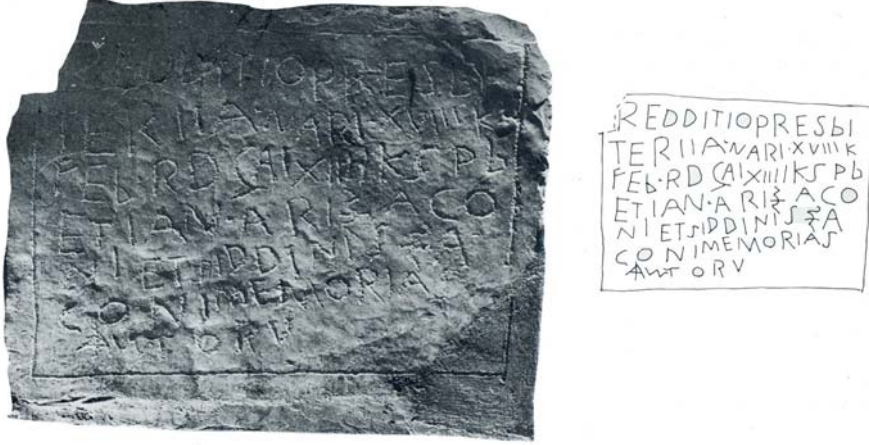 REDDITIOPRESbI
TERIIA·NARI·XVIIII K
FEb·RD ÇAIXIIII KS Pb
ETIAN·A RI ACO
NI ETSIDDINIS A
CONIMEMORIAS
ORV
REDDITIOPRESbI
TERIIA·NARI·XVIIII K
FEb·RD ÇAIXIIII KS Pb
ETIAN·A RI ACO
NI ETSIDDINIS A
CONIMEMORIAS
ORV